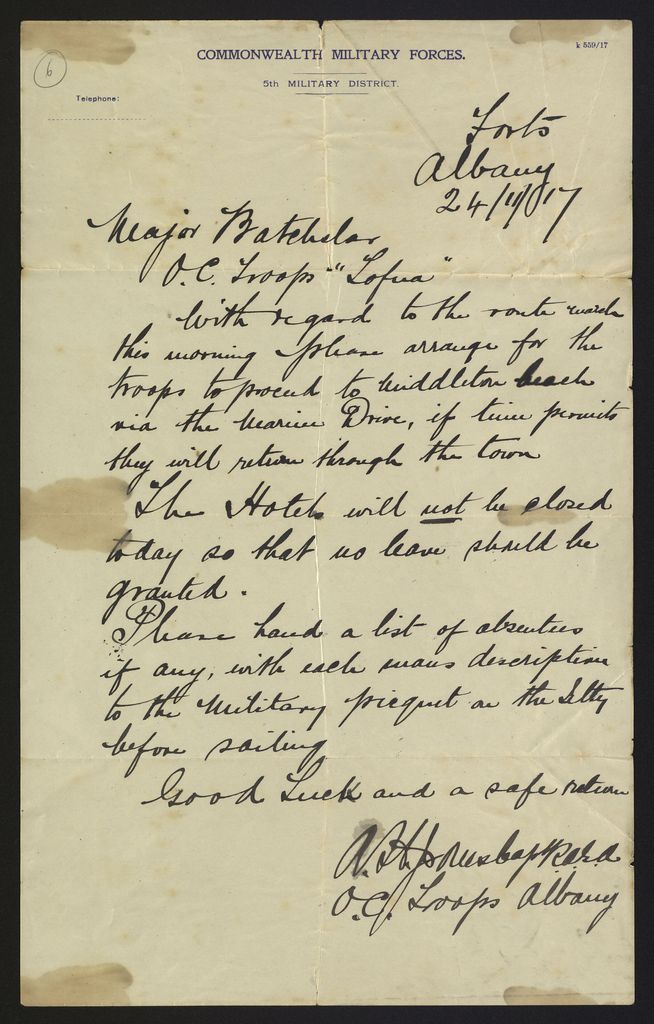 6
k 559/17
COMMONWEALTH MILITARY FORCES.
5th MILITARY DISTRICT.
Telephone:
Forts
Albany
24/11/17
Major Batchelar
O.C. Troops "Lofua"
With regard to the route march
this morning please arrange for the
troops to proceed to Middleton beach
via the Marine Drive, if time permits
they will return through the town
The Hotels will not be closed
today so that no leave should be
granted.
Please hand a list of absentees
if any, with each mans description
to the Military picquet on the Jetty
before sailing
Good Luck and a safe return
O.C. Troops Albany